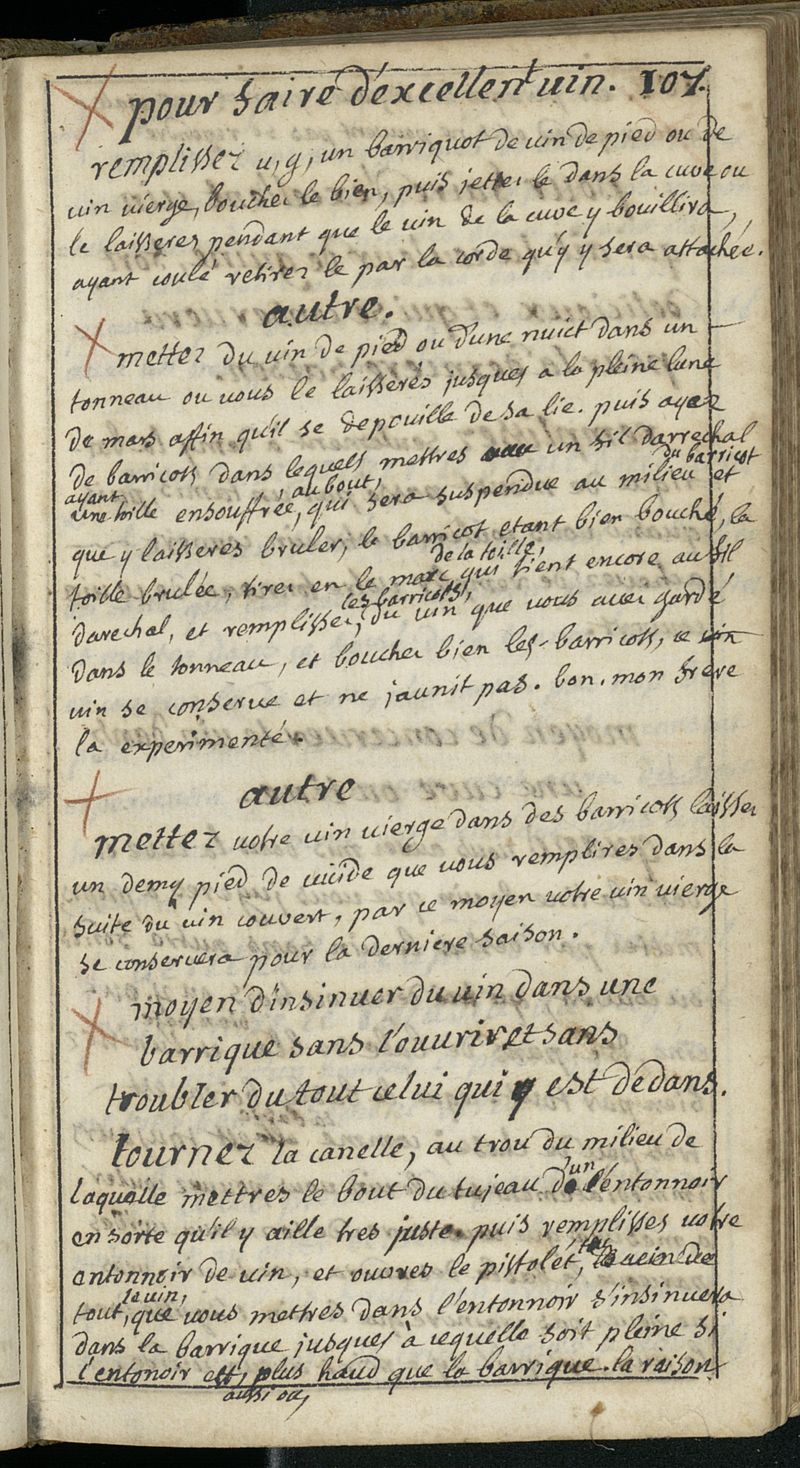 pour faire d'excellent vin. 107.
remplissez v, g, un barriquot de vin de pied ou de
vin vierge, bouchez le bien, puis jettez le dans la cuve ou
le laisseres pendant que le vin de la cuve y bouillira,
ayant coulé retirez le par la corde qu'y y sera attachée.
autre.
mettez du vin de pied ou d'une nuict dans un
tonneau ou vous le laisserés jusques a la pleine lune
de mars affin qu'il se depouille de sa lie. puis ayez
de barricots dans lequels mettres un fil darrechal
ayant au bout, du barricot
une toille ensouffrée, qui sera suspendue au milieu et
que y laisseres bruler, le barricot etant bien bouché, la
de la toille,
toille brulée, tirez en le marc qui tient encore au fil
les barricots,
darechal, et remplissez, du vin que vous avez gardé
dans le tonneau, et bouchez bien les barricots, ce vin
vin se conserve et ne jaunit pas. bon. mon frere
la experimenté.
autre
mettez votre vin vierge dans des barricots laissez
un demy pied de vuide que vous remplires dans la
suite du vin couvert, par ce moyen votre vin vierge
se conservera pour la derniere saison.
moyen d'insinuer du vin dans une
barrique sans l'ouvrir et sans
troubler du tout celui qui y est dedans.
tournez la canelle, au trou du milieu de
laquelle mettres le bout du tujeau d'un entonnoir
en sorte qu'il y aille tres juste. puis remplisses votre
antonnoir de vin, et ouvres le pistolét,
le vin,
tout, que vous mettres dans l'entonnoir s'insinuera
dans la barrique jusques à cequelle soit pleine si
l'entonoir est, plus haud que la barrique. la raison
aussi ou,